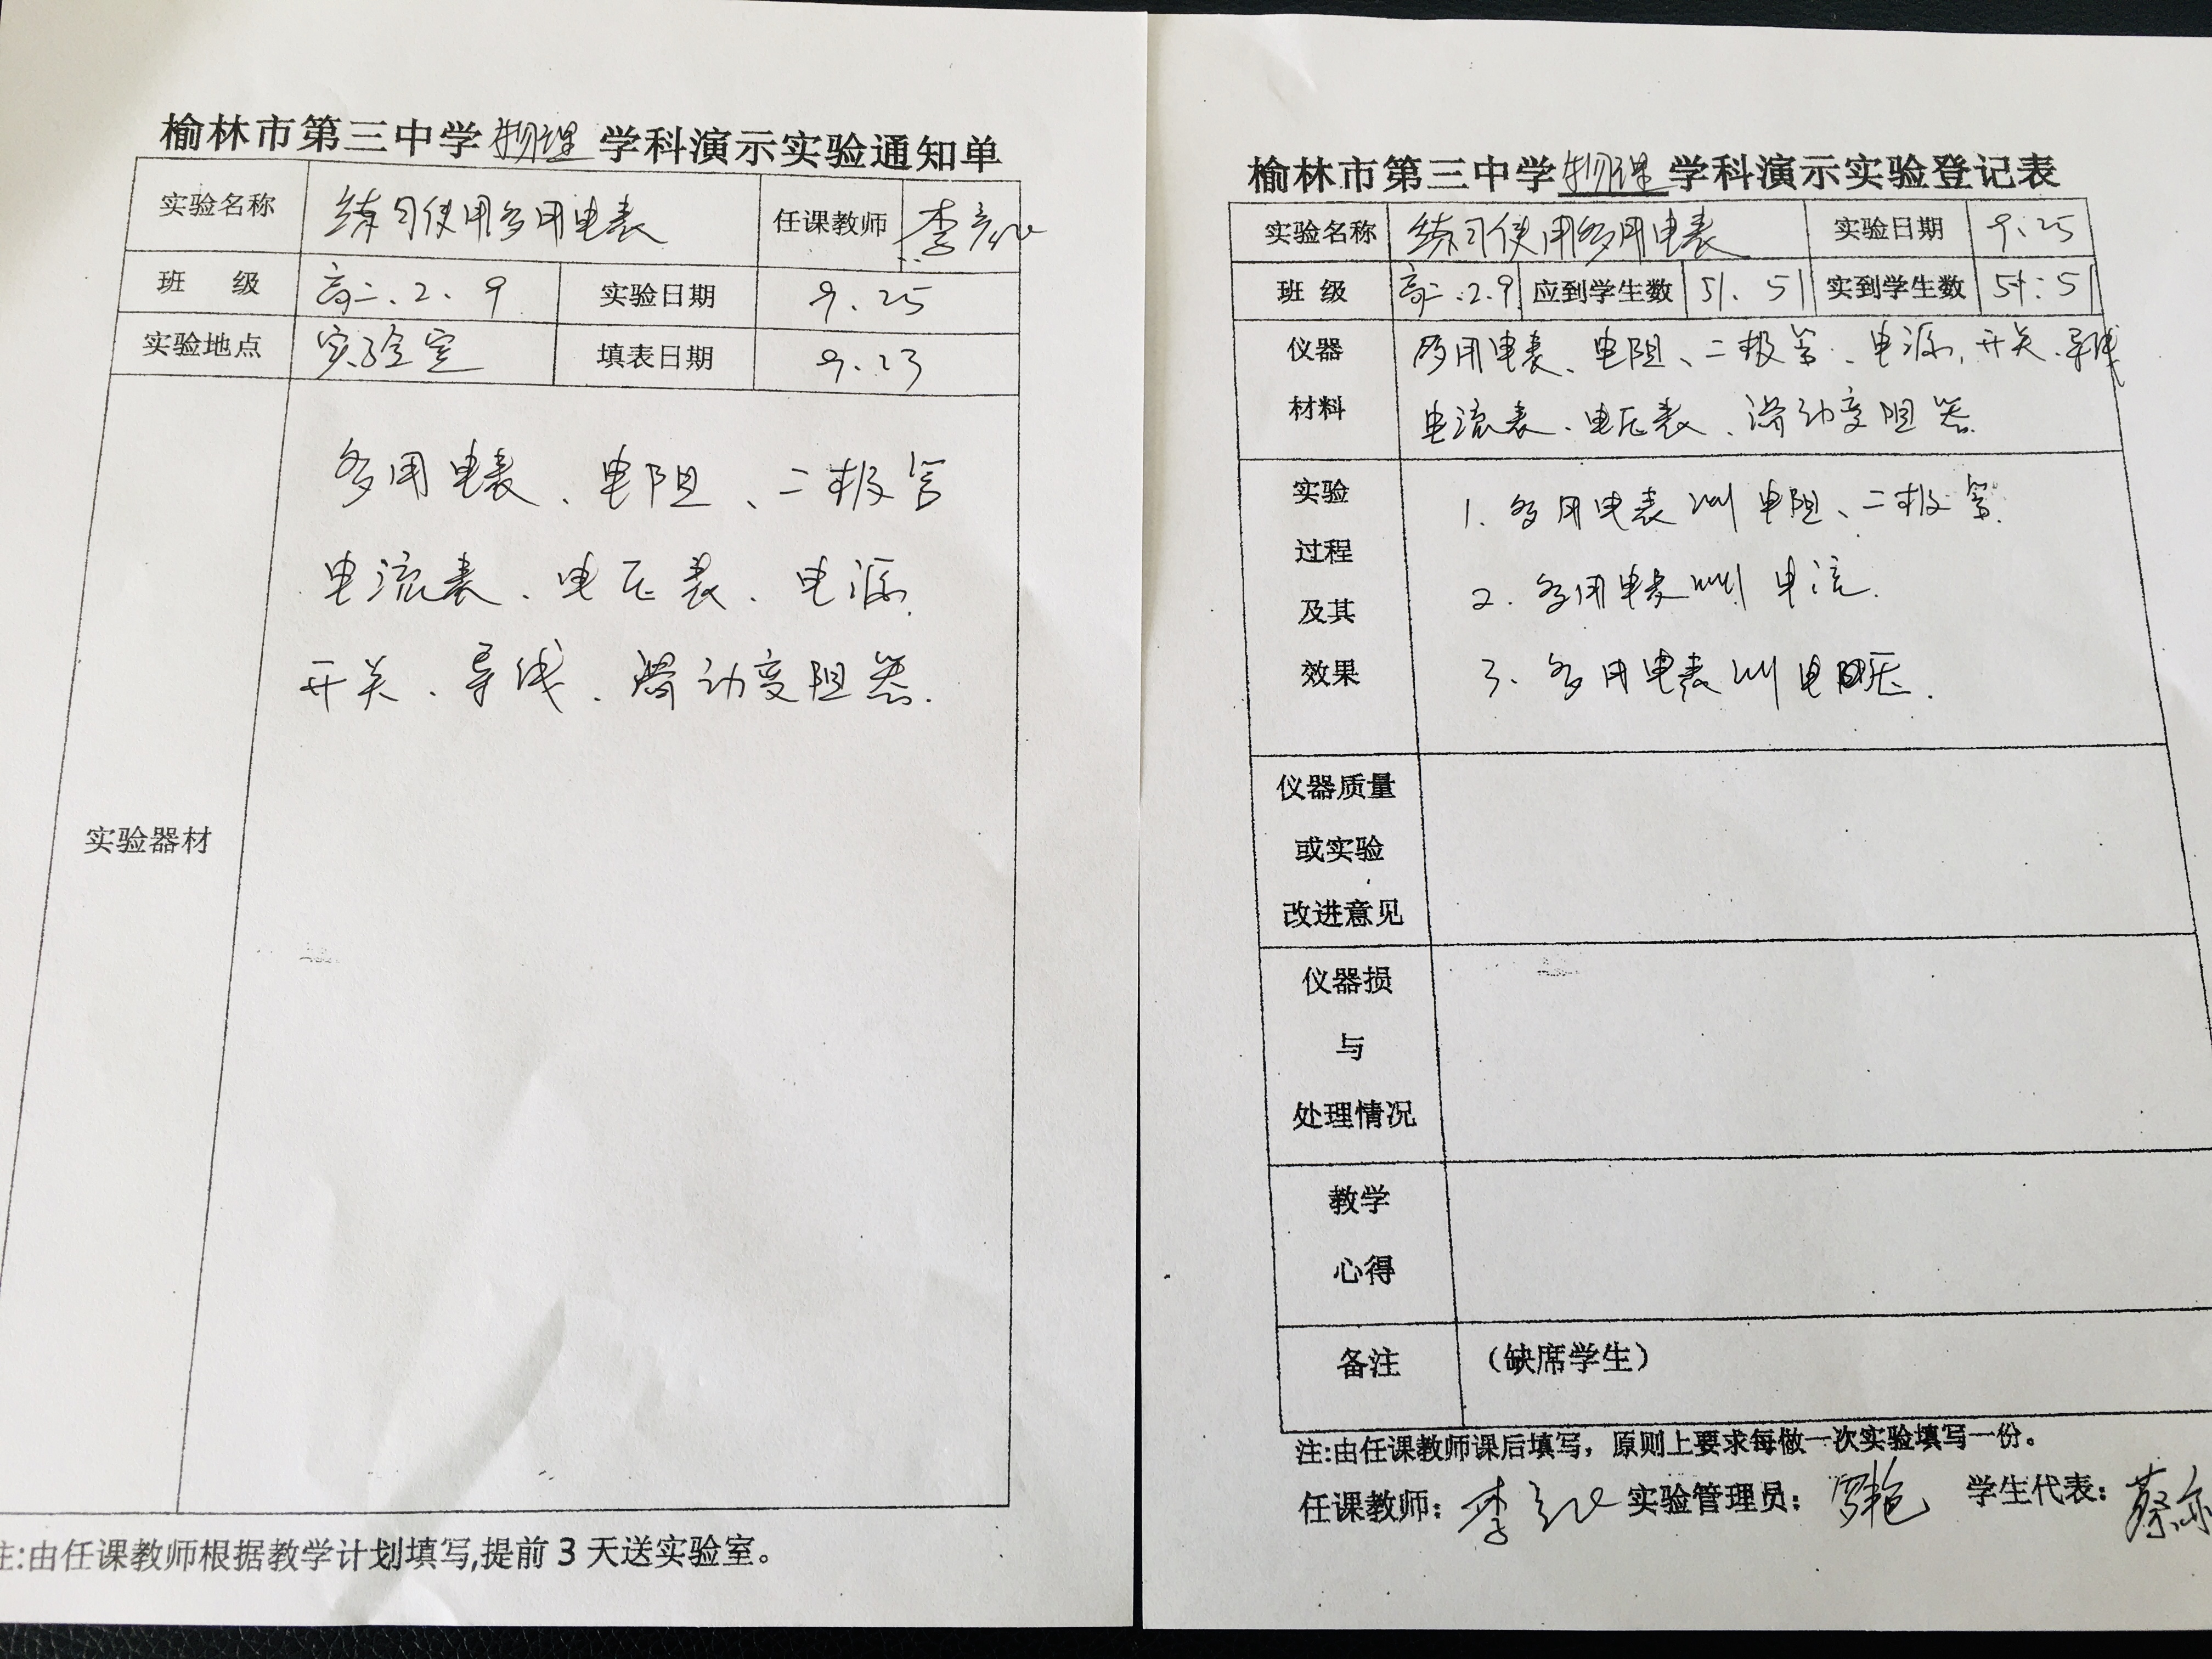 榆林市第三中学物理学科演示实验通知单
实验名称 练习使用多用电表 任课教师 李
班 级 高二、2、9 实验日期 9、25
实验地点 实验室 填表日期 9、23
实验器材
多用电表、电阻、二极管
电流表、电压表、电源、
开关、导线、滑动变阻器.
注:由任课教师根据教学计划填写,提前3天送实验室。
榆林市第三中学物理学科演示实验登记表
实验名称 练习使用多用电表 实验日期 9、25
班 级 高二、2、9 应到学生数 51、51 实到学生数 51、51
仪器
材料
多用电表、电阻、二极管、电源、开关、导线
电流表、电压表、滑动变阻器.
实验
过程
及其
效果
1. 多用电表测电阻、二极管.
2. 多用电表测电流.
3. 多用电表测电压.
仪器质量
或实验
改进意见
仪器损
与
处理情况
教学
心得
备注 （缺席学生）
注:由任课教师课后填写，原则上要求每做一次实验填写一份。
任课教师：李 实验管理员：罗艳 学生代表：蔡